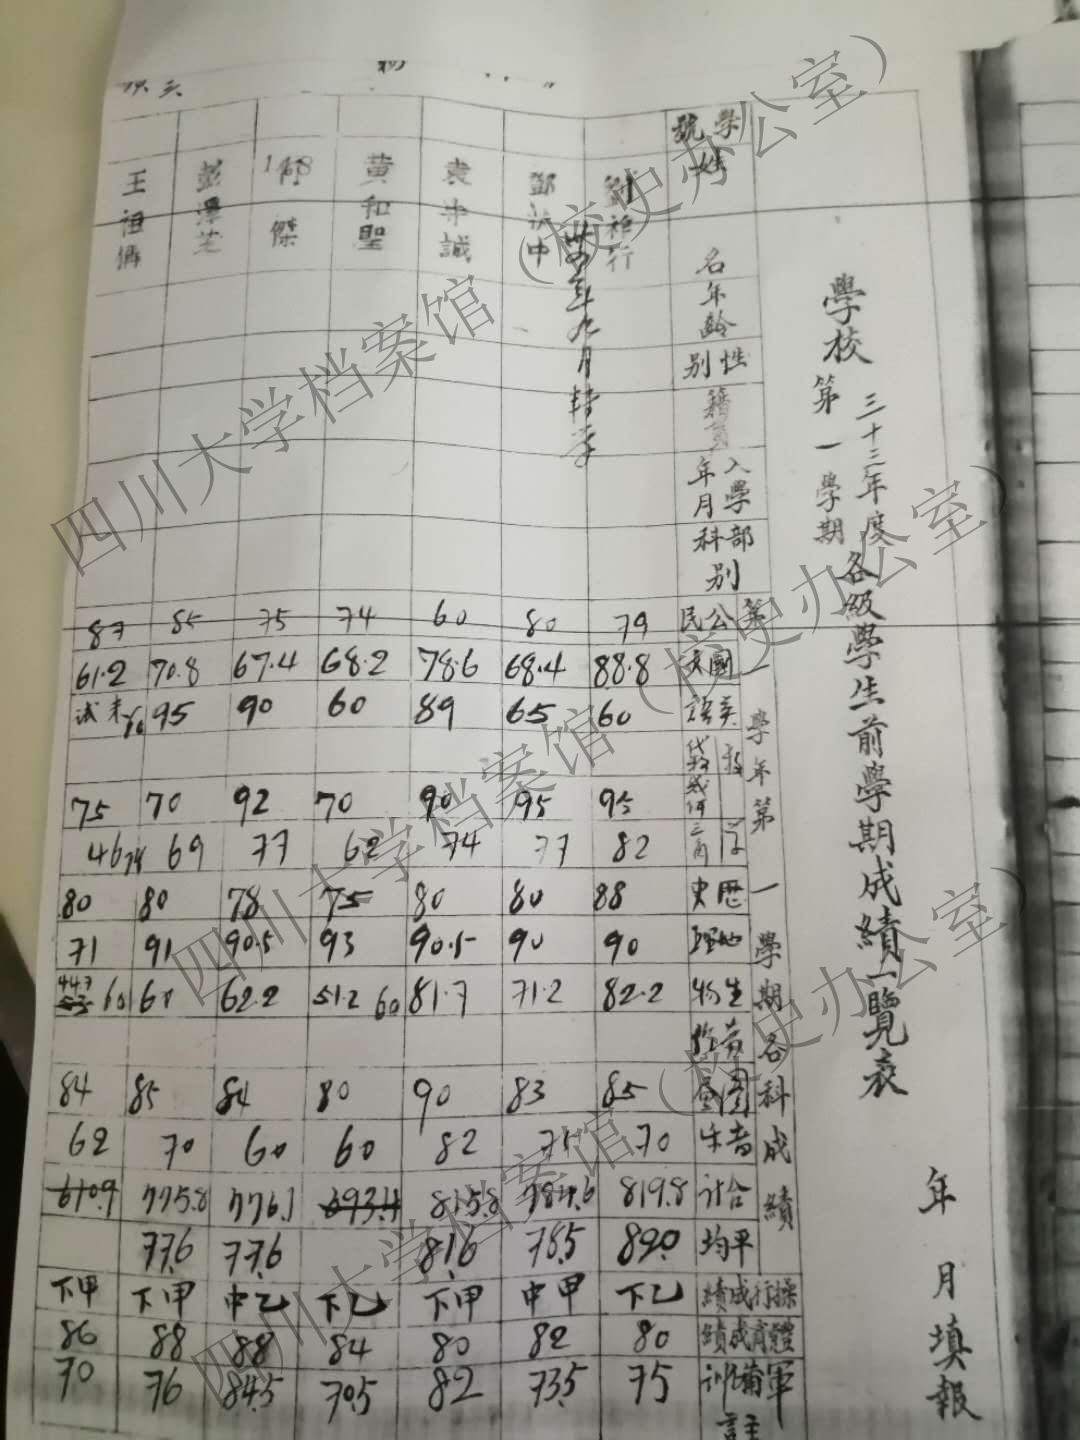 學校
三十三年度
第一學期
各級學生前學期成績一覽表
年 月 填報
學號
姓名
年齡
性別
籍貫
入學年月
部別科
第一學年第一學期各科成績
公民
國文
英語
數學
代數
幾何
三角
歷史
地理
生物
圖畫
音樂
合計
平均
操行成績
體育成績
軍訓
備註
79
88.8
60
95
82
88
90
82.2
85
70
819.8
乙下
80
75
鄧 中
卅四年九月轉學
80
68.4
65
95
77
80
90
71.2
83
75
784.6
78.5
甲中
82
73.5
袁 誠
60
78.6
89
90
74
80
90.5
81.7
90
82
815.8
81.6
甲下
80
82
黃和聖
74
68.2
60
70
62
75
93
51.2 60
80
60
693.4
乙下
84
70.5
148
傑
75
67.4
90
92
77
78
90.5
62.2
84
60
776.1
77.6
乙中
88
84.5
彭澤芝
85
70.8
95
70
69
80
91
60
85
70
775.8
77.6
甲下
88
76
王祖
87
61.2
未試
75
46
80
71
44.7 60
84
62
甲下
86
70
四川大学档案馆（校史办公室）
四川大学档案馆（校史办公室）
四川大学档案馆（校史办公室）